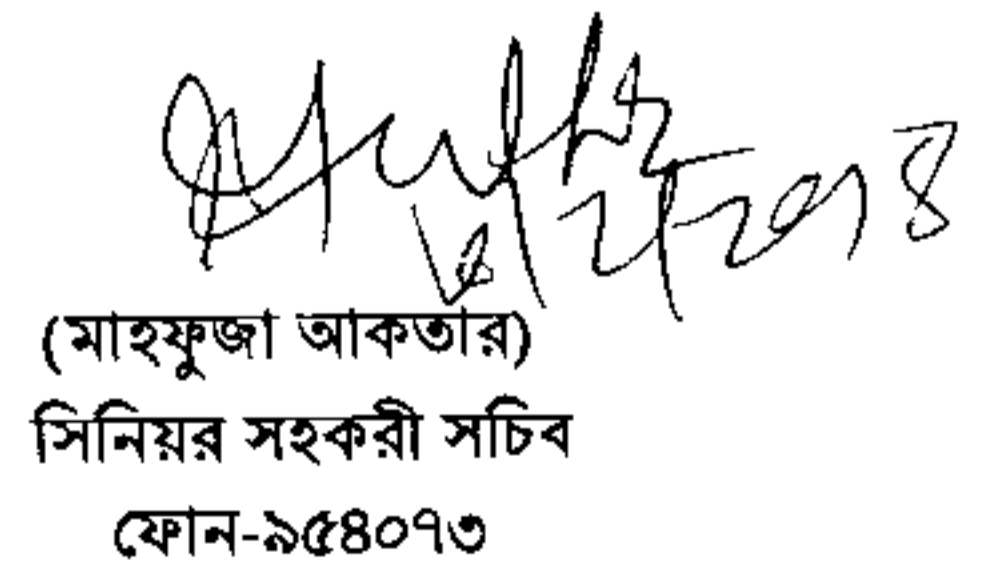 (মাহফুজা আকতার)
সিনিয়র সহকরী সচিব
ফোন-৯৫৪০৭৩